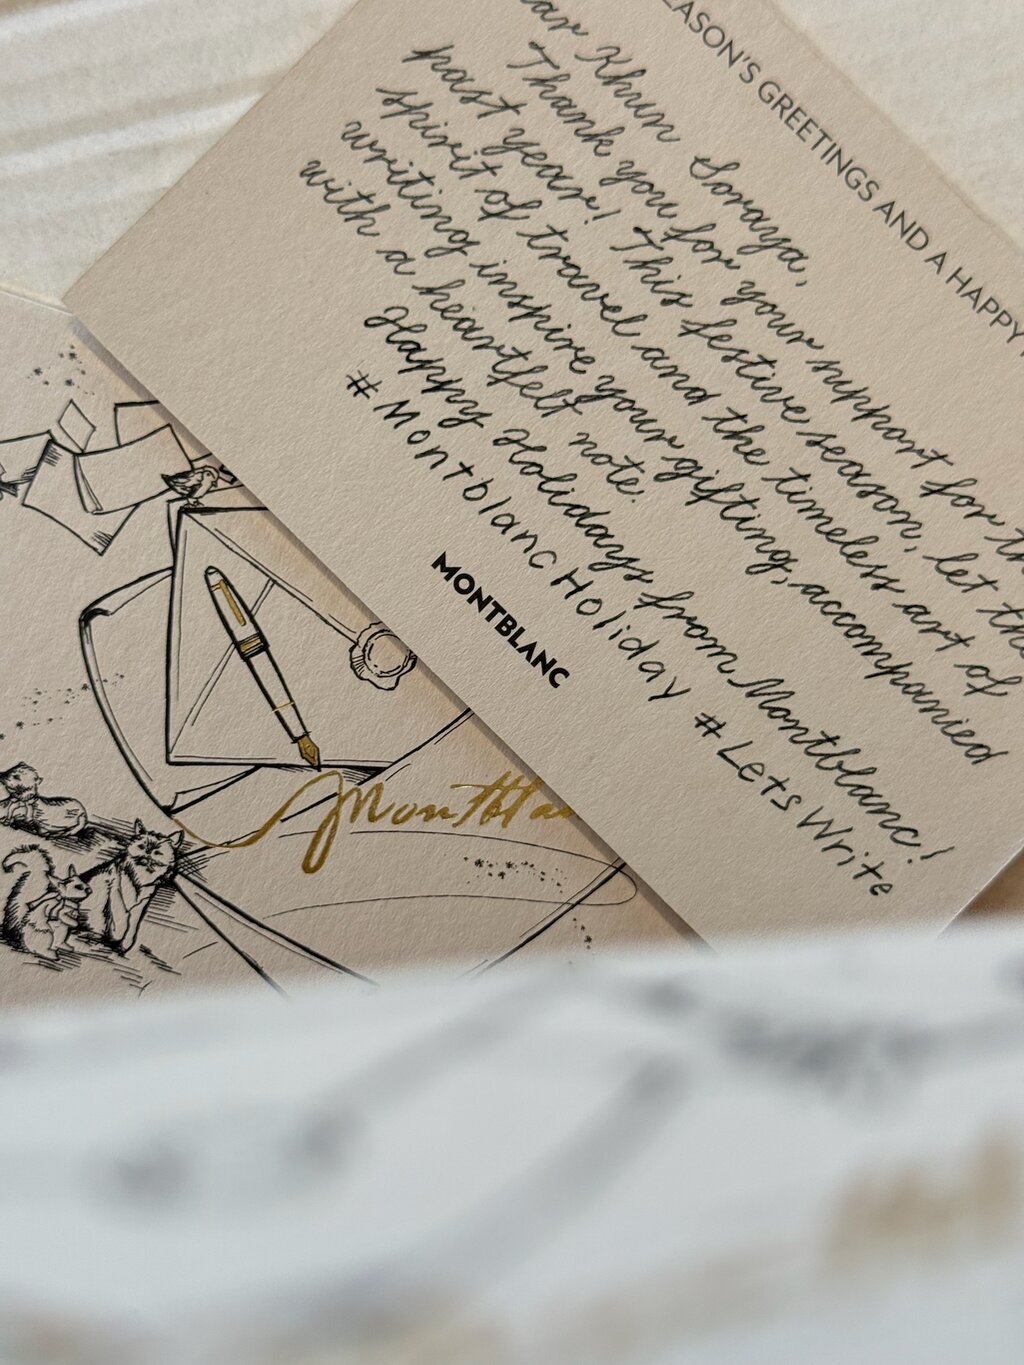 EASON'S GREETINGS AND A HAPPY
ar Khun Soraya,
Thank you for your support for th
past year! This festive season, let the
spirit of travel and the timeless art of
writing inspire your gifting, accompanied
with a heartfelt note.
Happy Holidays from Montblanc!
#MontblancHoliday #LetsWrite
MONTBLANC
Montblan